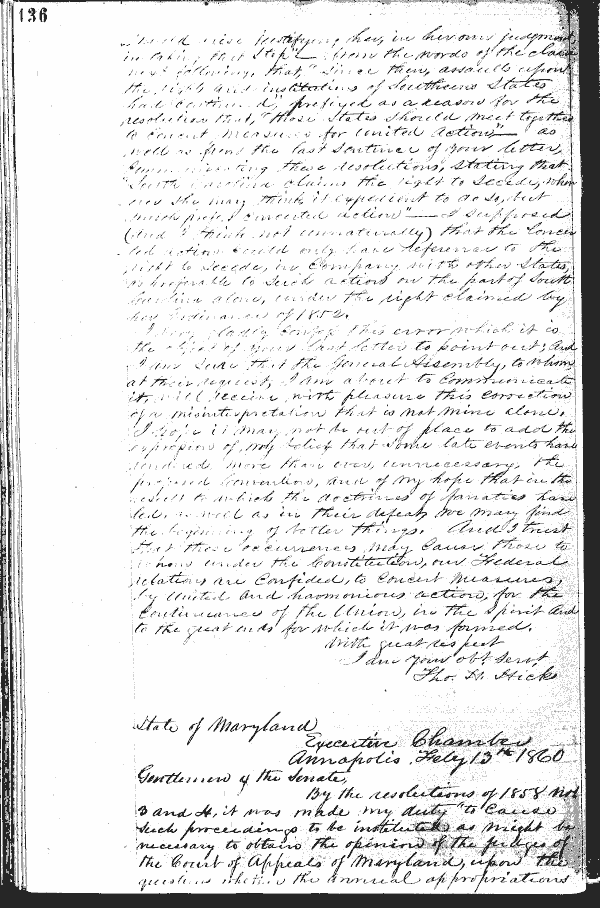 136
should arise justifying her, in her own judgment
in taking that step"— from the words of the clause
next following, that, "Since then, assaults upon
the rights and institutions of Southern States
had continued," prefixed as a reason for the
resolution that, "those States should meet together
to concert measures for united action"— as
well as from the last sentence of your letter,
communicating these resolutions, stating that
"South Carolina claims the right to Secede, when
ever she may think it expedient to do so, but
much prefers concerted action"— I supposed
(and I think not unnaturally) that the Concer
ted action could only have reference to the
right to Secede, in Company with other States,
as preferable to such action on the part of South
Carolina alone, under the right claimed by
her Ordinance of 1852.
I very gladly confess this error which it is
the object of your last letter to point out; and
I am sure that the General Assembly, to whom
at their request, I am about to Communicate
it, will receive with pleasure this correction
of a misinterpretation that is not mine alone.
I hope it may not be out of place to add the
expression of my belief that some late events have
rendered, more than ever, unnecessary, the
proposed Convention, and of my hope that in the
results to which the doctrines of fanatics have
led, as well as in their defeat, we may find
the beginning of better things. And I trust
that these occurrences may Cause those to
whom under the Constitution, our Federal
relations are Confided, to Concert Measures,
by United and harmonious action, for the
Continuance of the Union, in the Spirit and
to the great ends for which it was formed.
With great respect
I am your obt. Servt.
Tho. H. Hicks
State of Maryland
Executive Chamber
Annapolis Feby 13th 1860
Gentlemen of the Senate,
By the resolutions of 1858 Nos
3 and 4, it was made my duty "to Cause
such proceedings to be instituted as might be
necessary to obtain the opinion of the judges of
the Court of Appeals of Maryland, upon the
questions whether the annual appropriations